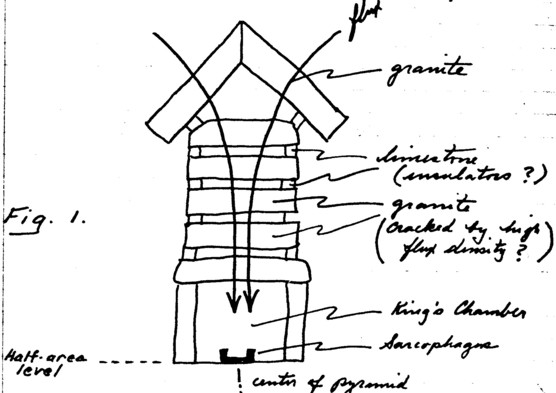 flux
granite
limestone
(insulators ?)
granite
(cracked by high
flux density ?)
Fig. 1.
King's Chamber
Sarcophagos
Half-area
level
center of pyramid